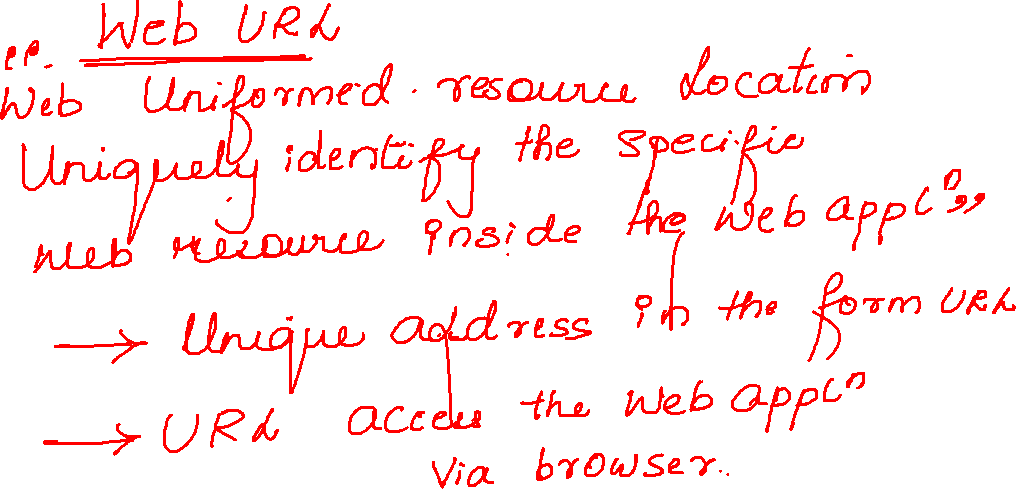 Web URL
Web Uniformed. resource Location
Uniquely identify the specific
web resource inside the web appln,,
→ Unique address in the form URL
→ URL access the web appln
Via browser..